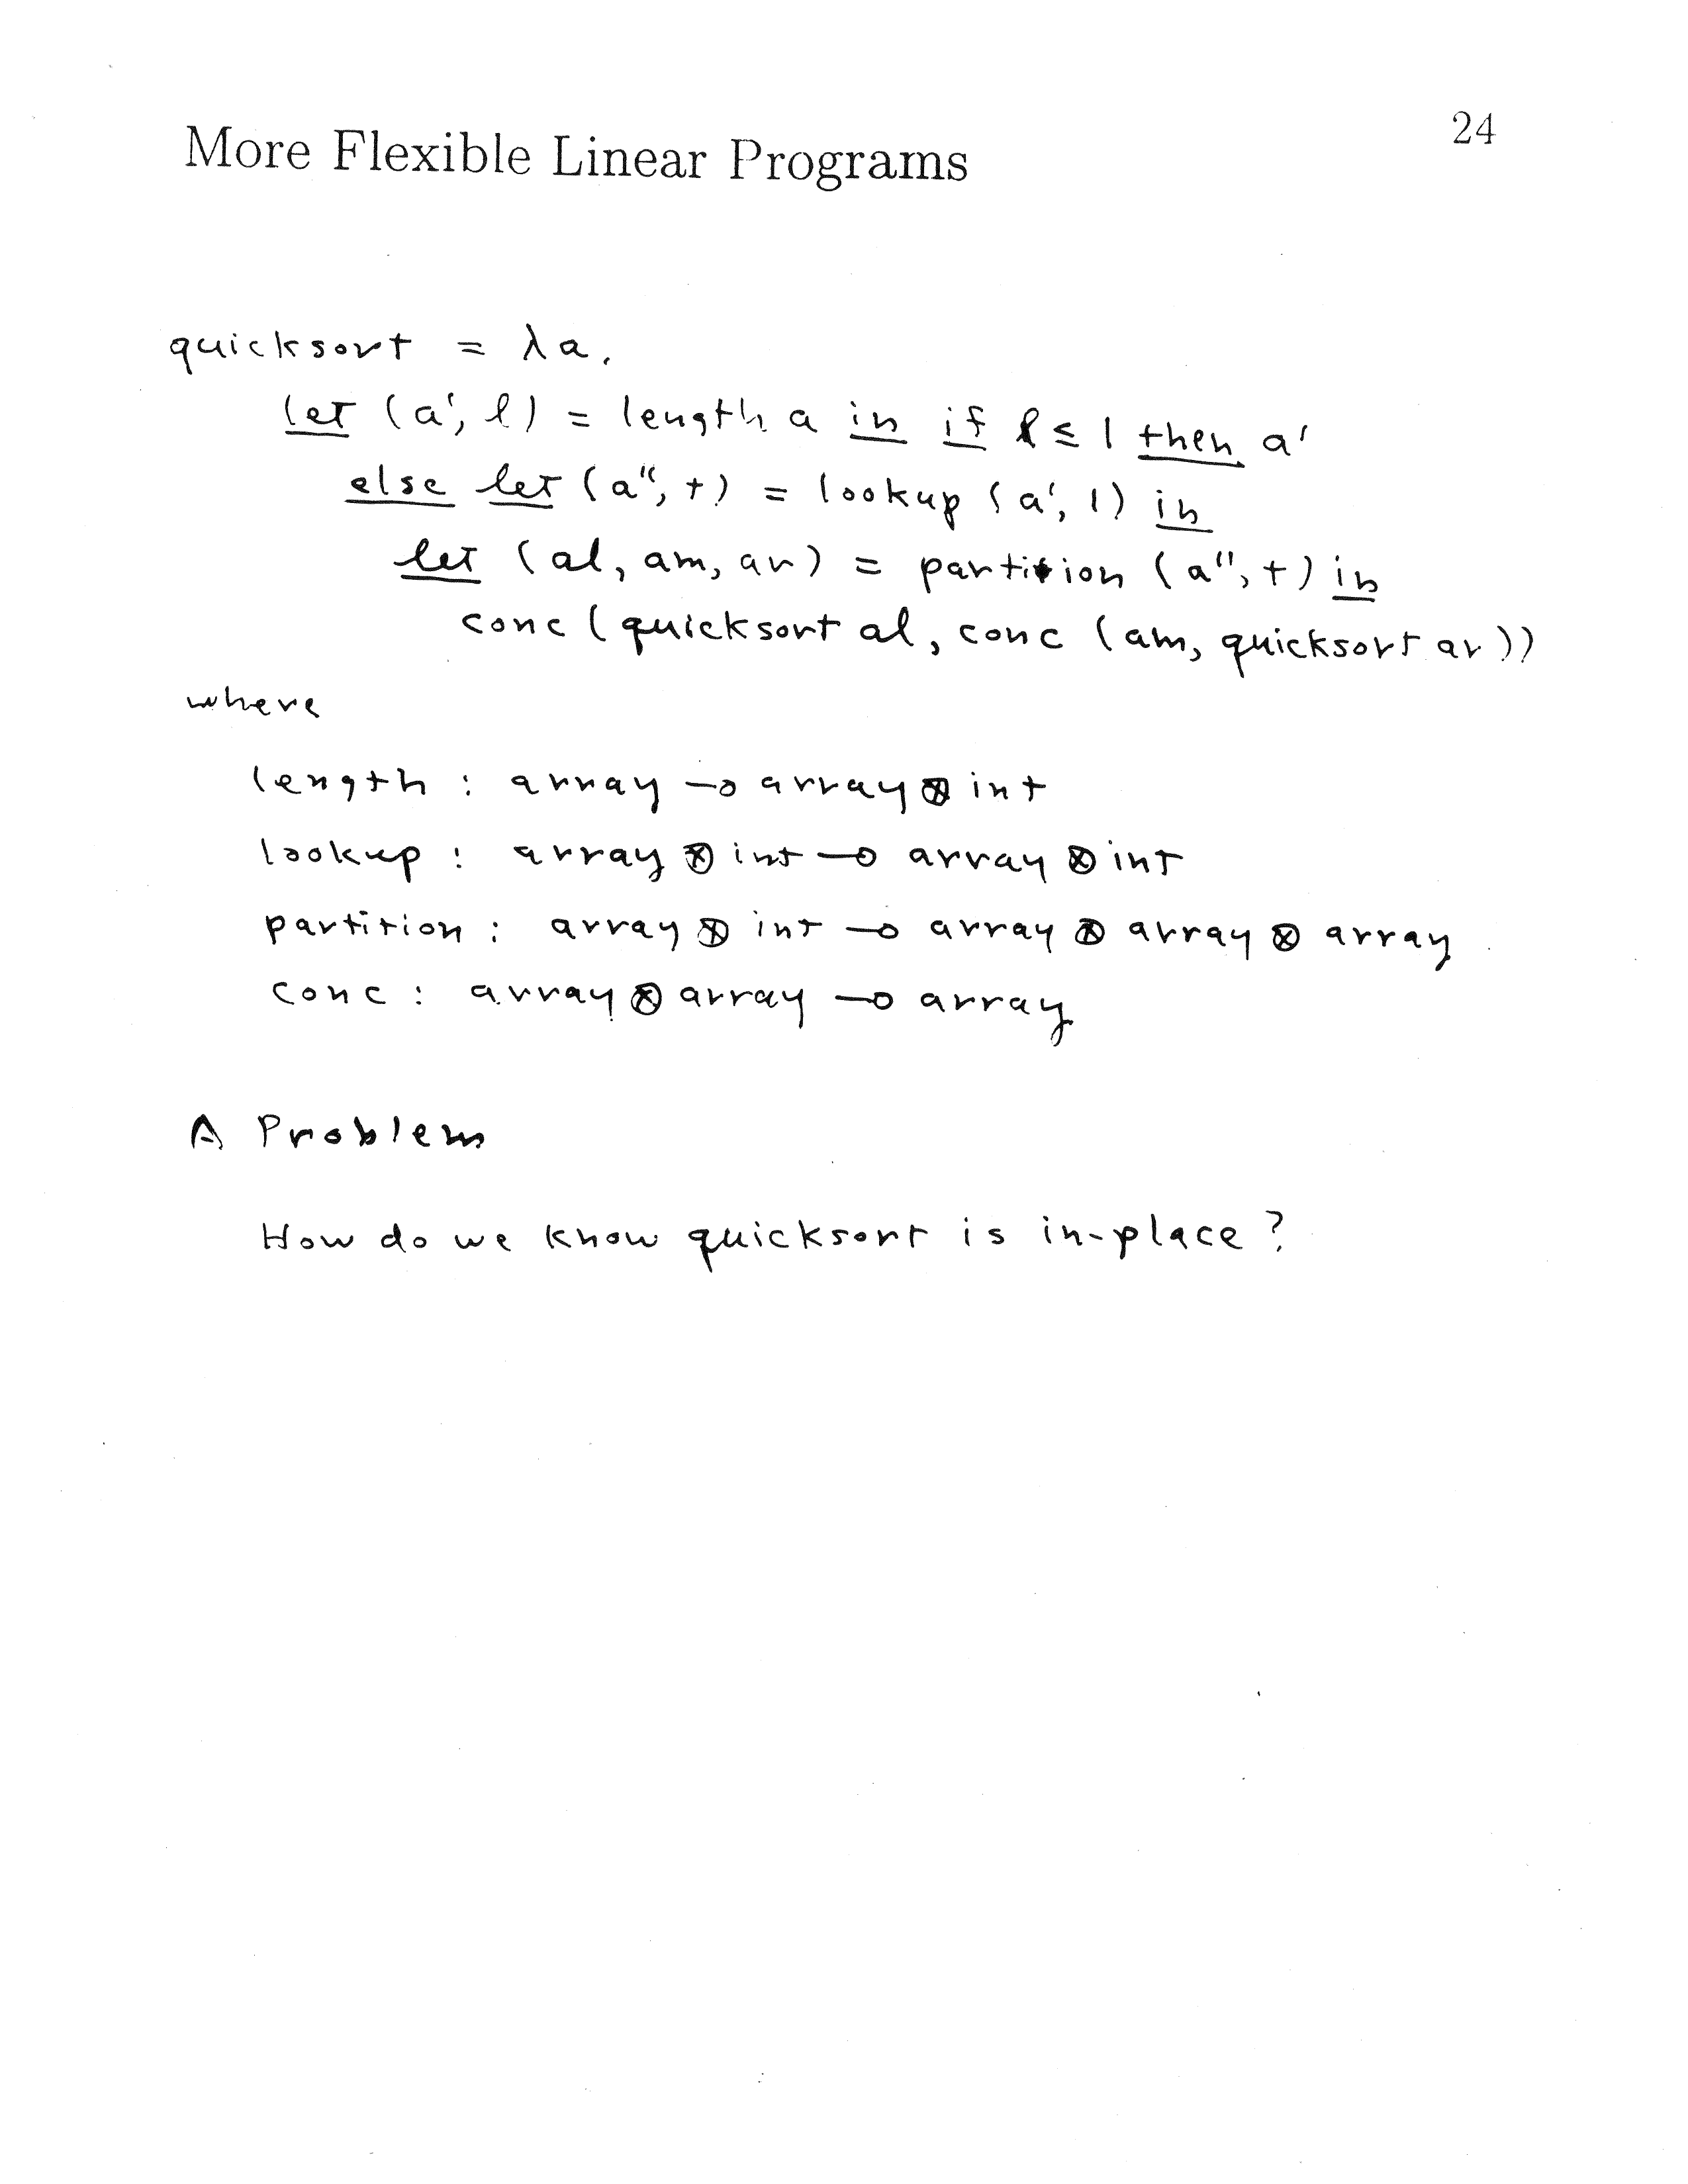 24
More Flexible Linear Programs
quicksort = λa.
let (a', l) = length a in if l ≤ 1 then a'
else let (a", t) = lookup (a', 1) in
let (al, am, ar) = partition (a", t) in
conc (quicksort al, conc (am, quicksort ar))
where
length : array ⊸ array ⊗ int
lookup : array ⊗ int ⊸ array ⊗ int
partition : array ⊗ int ⊸ array ⊗ array ⊗ array
conc : array ⊗ array ⊸ array
A Problem
How do we know quicksort is in-place?